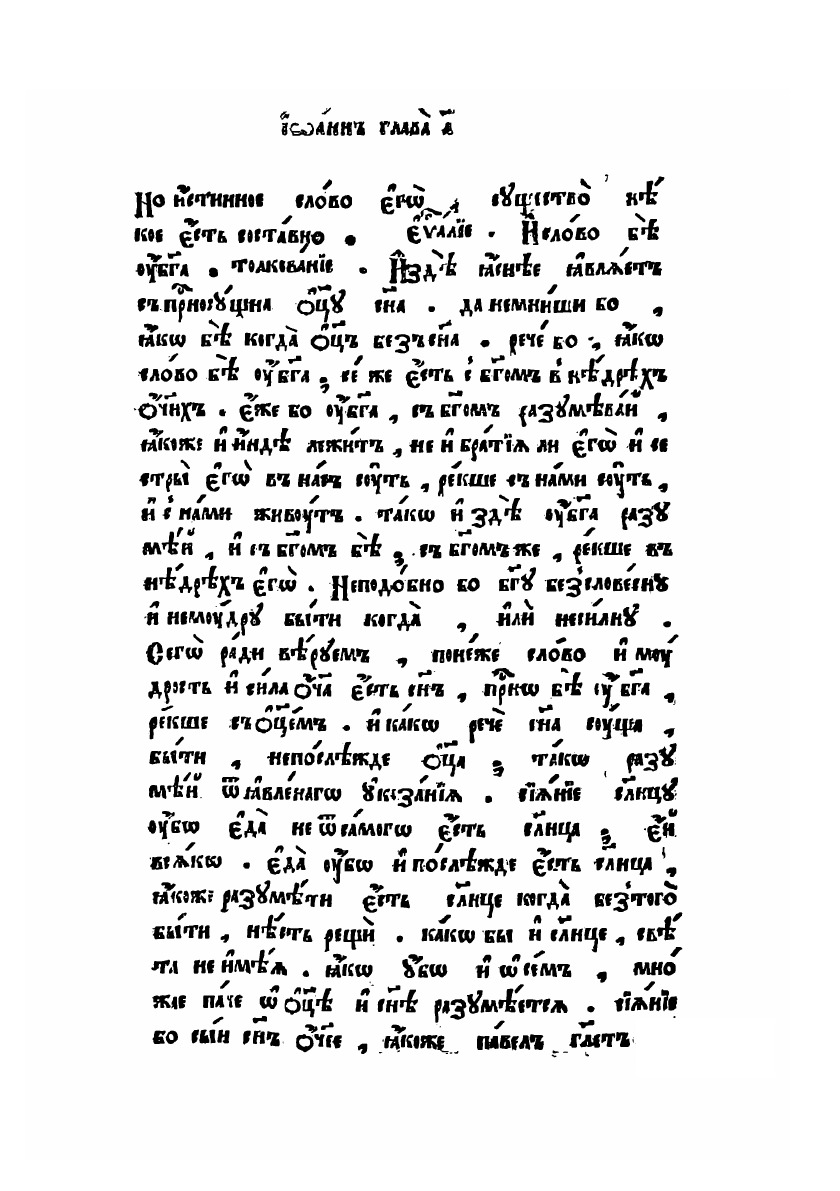 І҆ѡа́ннъ глава̀ а҃
но и҆́стинное сло́во є҆гѡ̀, сꙋщество̀ нѣ́
кое є҆́сть соста́вно . є҆ѵⷢ҇а́лїе . И҆сло́во бѣ̀
ѹ҆бг҃а . толкова́нїе . И҆здѣ̀ ꙗ҆́снѣе ꙗ҆влѧ́етъ
съприⷭ҇носꙋ́щна ѻ҆ц҃ꙋ сн҃а . да немни́ши бо ,
ꙗ҆́кѡ бѣ̀ когда̀ ѻ҆ц҃ъ безъсн҃а . рече́ бо , ꙗ҆́кѡ
сло́во бѣ̀ ѹ҆бг҃а , се́ же є҆́сть с̾ бг҃омъ в̾ нѣ́дрѣхъ
ѻ҆́ч҃ихъ . є҆́же бо ѹ҆бг҃а , съ бг҃омъ разꙋмѣва́й ,
ꙗ҆́коже и҆ и҆́ндѣ лежи́тъ , не и҆ бра́тїѧ ли є҆гѡ̀ и҆ се
стры̀ є҆гѡ̀ въ на́съ сѹ́ть , ре́кше съ на́ми сѹ́ть ,
и҆ с̾ на́ми живѹ́тъ . та́кѡ и҆ здѣ̀ ѹ҆бг҃а разꙋ
мѣ́й , и҆ съ бг҃омъ бѣ̀ , съ бг҃омъ же , ре́кше въ
нѣ́дрѣхъ є҆гѡ̀ . Неподо́бно бо бг҃ꙋ без̾слове́снꙋ
и҆ немѹ́дрꙋ бы́ти когда̀ , и҆лѝ неси́лнꙋ .
Сегѡ̀ ра́ди вѣ́рꙋемъ , поне́же сло́во и҆ мѹ́
дрость и҆ си́ла ѻ҆́ч҃а є҆́сть сн҃ъ , при́снѡ бѣ̀ ѹ҆ бг҃а ,
ре́кше съ ѻ҆ц҃е́мъ . и҆ ка́кѡ речѐ сн҃а сѹ́ща ,
бы́ти , непослѣ́жде ѻ҆ц҃а , та́кѡ разꙋ
мѣ́й ѿ ꙗ҆вле́нагѡ ᲂука҆за́нїѧ . сїѧ́нїе сл҃нцꙋ
ѹ҆́бѡ є҆да̀ не ѿ самогѡ̀ є҆́сть сл҃нца , є҆́й
всѧ́кѡ . є҆да̀ ѹ҆́бѡ и҆ послѣ́жде є҆́сть сл҃нца ,
ꙗ҆́коже разꙋмѣ́ти є҆́сть сл҃нце когда̀ без̾ того̀
бы́ти , нѣ́сть рещѝ . ка́кѡ бы и҆ сл҃нце , свѣ́
та не и҆мѣ́ѧ . ꙗ҆́кѡ ꙋ҆́бѡ и҆ ѡ҆ се́мъ , мно́
жае па́че ѡ҆ ѻ҆ц҃ѣ̀ и҆ сн҃ѣ разꙋмѣ́етсѧ . сїѧ́нїе
бо сы́и сн҃ъ ѻ҆́ч҃ее , ꙗ҆́коже па́велъ гл҃етъ